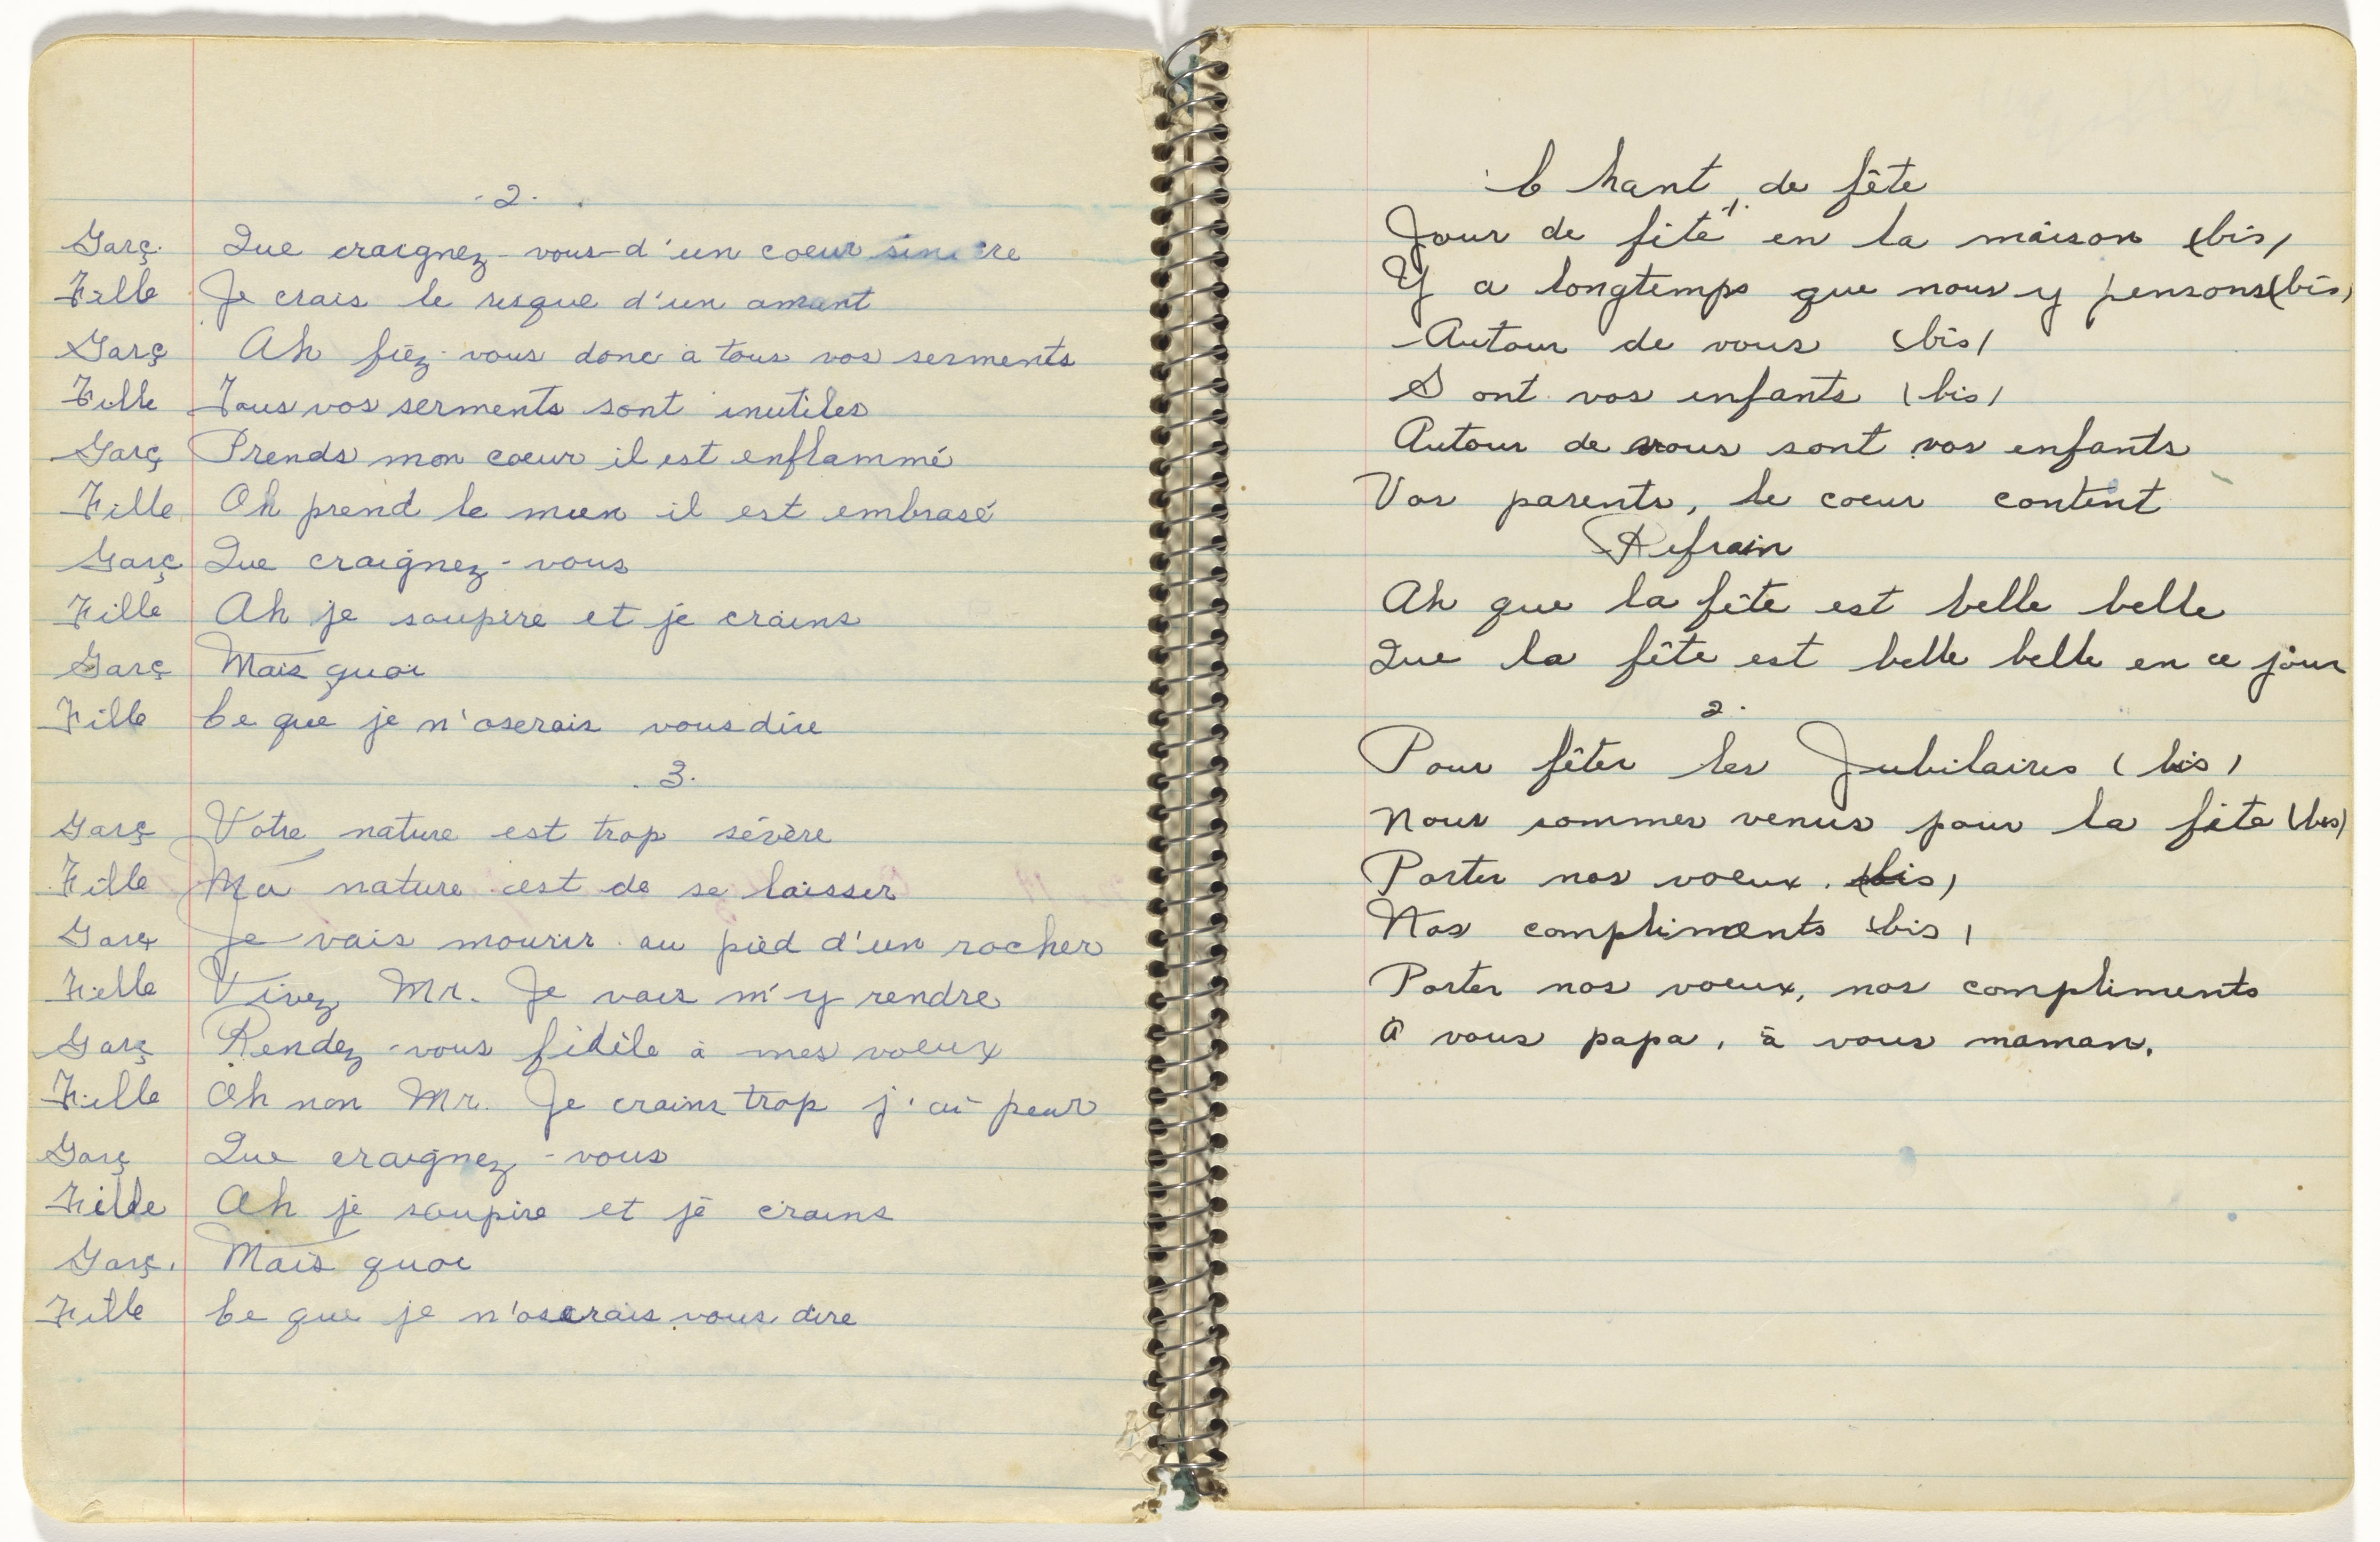 -2-
Garç. Que craignez-vous d'un coeur sincère
Fille Je crais le risque d'un amant
Garç Ah fiez-vous donc a tous vos serments
Fille Tous vos serments sont inutiles
Garç Prends mon coeur il est enflammé
Fille Oh prend le mien il est embrasé
Garç Que craignez-vous
Fille Ah je soupire et je crains
Garç Mais quoi
Fille Ce que je n'oserais vous dire
3.
Garç Votre nature est trop sévère
Fille Ma nature est de se laisser
Garç Je vais mourir au pied d'un rocher
Fille Vivez Mr. Je vais m'y rendre
Garç Rendez-vous fidèle à mes voeux
Fille Oh non Mr. Je crains trop j'ai peur
Garç Que craignez-vous
Fille Ah je soupire et je crains
Garç. Mais quoi
Fille Ce que je n'oserais vous dire
Chant de fête
1.
Jour de fête en la maison (bis)
Y a longtemps que nous y pensons (bis)
Autour de vous (bis)
Sont vos enfants (bis)
Autour de vous sont vos enfants
Vos parents, le coeur content
Refrain
Ah que la fête est belle belle
Que la fête est belle belle en ce jour
2.
Pour fêter les Jubilaires (bis)
Nous sommes venus pour la fête (bis)
Porter nos voeux. (bis)
Nos compliments (bis)
Porter nos voeux, nos compliments
À vous papa, à vous maman.